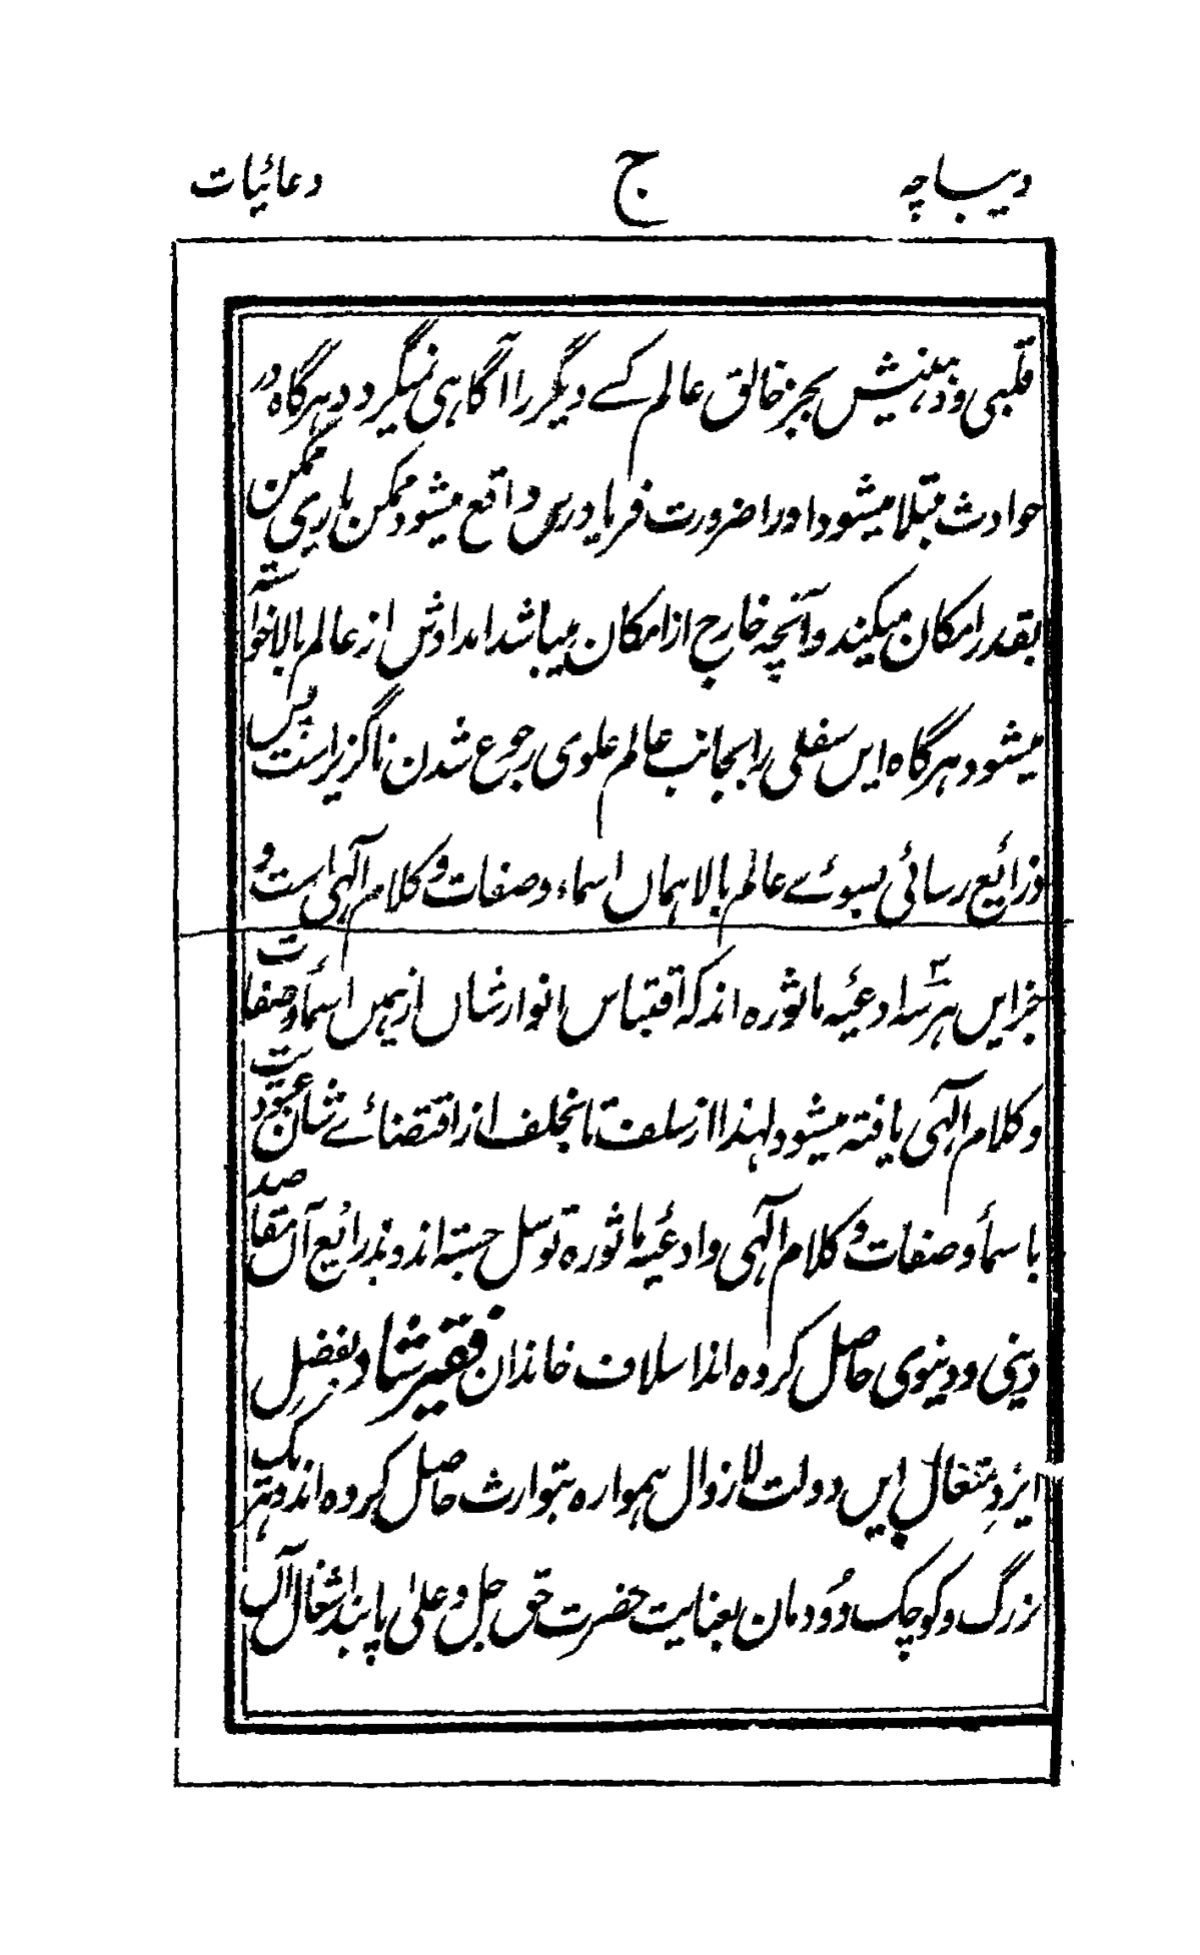 دیباچہ ج دعائیات
قلبی و ذہنیش بجز خالق عالم کسے دیگر را آگاہی نمیگردد ہرگاہ در
حوادث مبتلا میشود اورا ضرورت فریادرس واقع میشود ممکن یاری ممکن
بقدر امکان میکند و آنچہ خارج از امکان میباشد امدادش از عالم بالا خواستہ
میشود ہرگاہ ایں سفلی را بجانب عالم علوی رجوع شدن ناگزیر است پس
ذرائع رسائی بسوئے عالم بالا ہماں اسماء و صفات و کلام الٰہی است و
جز ایں ہر سہ ادعیٔہ ماثورہ اند کہ اقتباس انوار شاں از ہمیں اسمأ و صفات
و کلام الٰہی یافتہ میشود لہذا از سلف تا بخلف از اقتضائے شان عبودیت
با سمأ و صفات و کلام الٰہی و ادعیٔہ ماثورہ توسل جستہ اند و بذرائع آں مقاصد
دینی و دینوی حاصل کردہ اند اسلاف خاندان فقیر شاد بفضل
ایزدِ متعال ایں دولت لازوال ہموارہ بتوارث حاصل کردہ اند و ہر یک
بزرگ و کوچک دُوْدمان بعنایت حضرت حق جل و علیٰ پابند اشغال آں